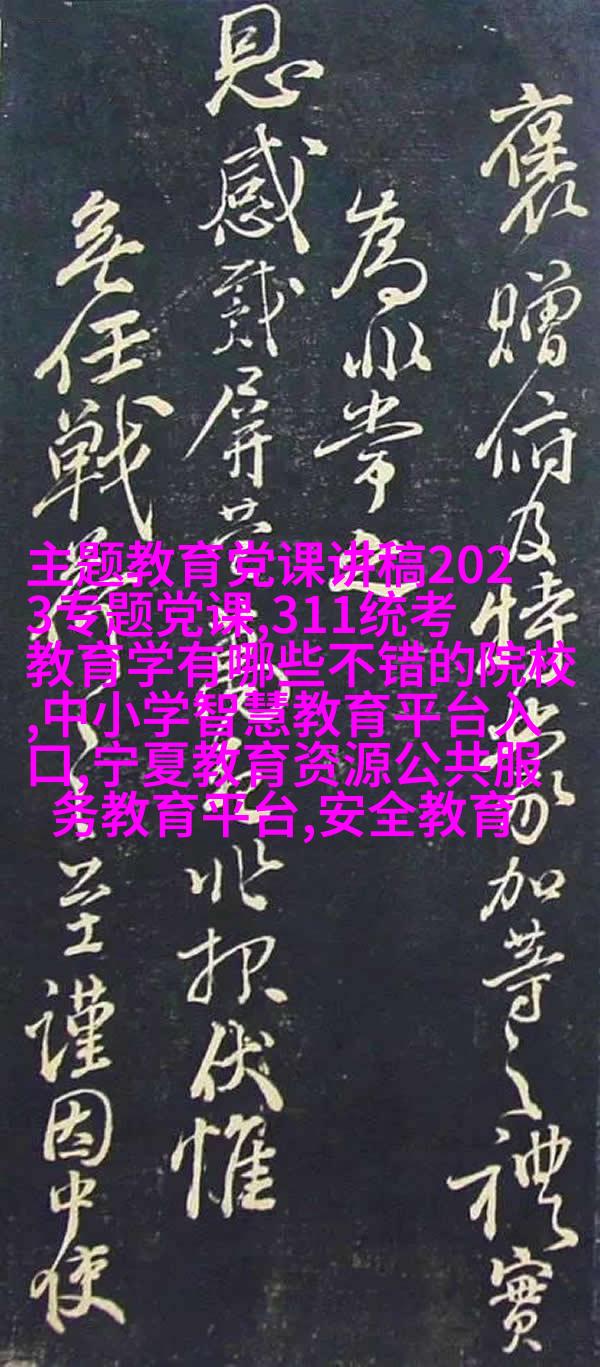 褒贈俯及特蒙加等之禮實
為非常之
恩感戴屏報伏惟
無任戰之至謹因中使
主题教育党课讲稿202
3专题党课,311统考
教育学有哪些不错的院校
,中小学智慧教育平台入
口,宁夏教育资源公共服
务教育平台,安全教育